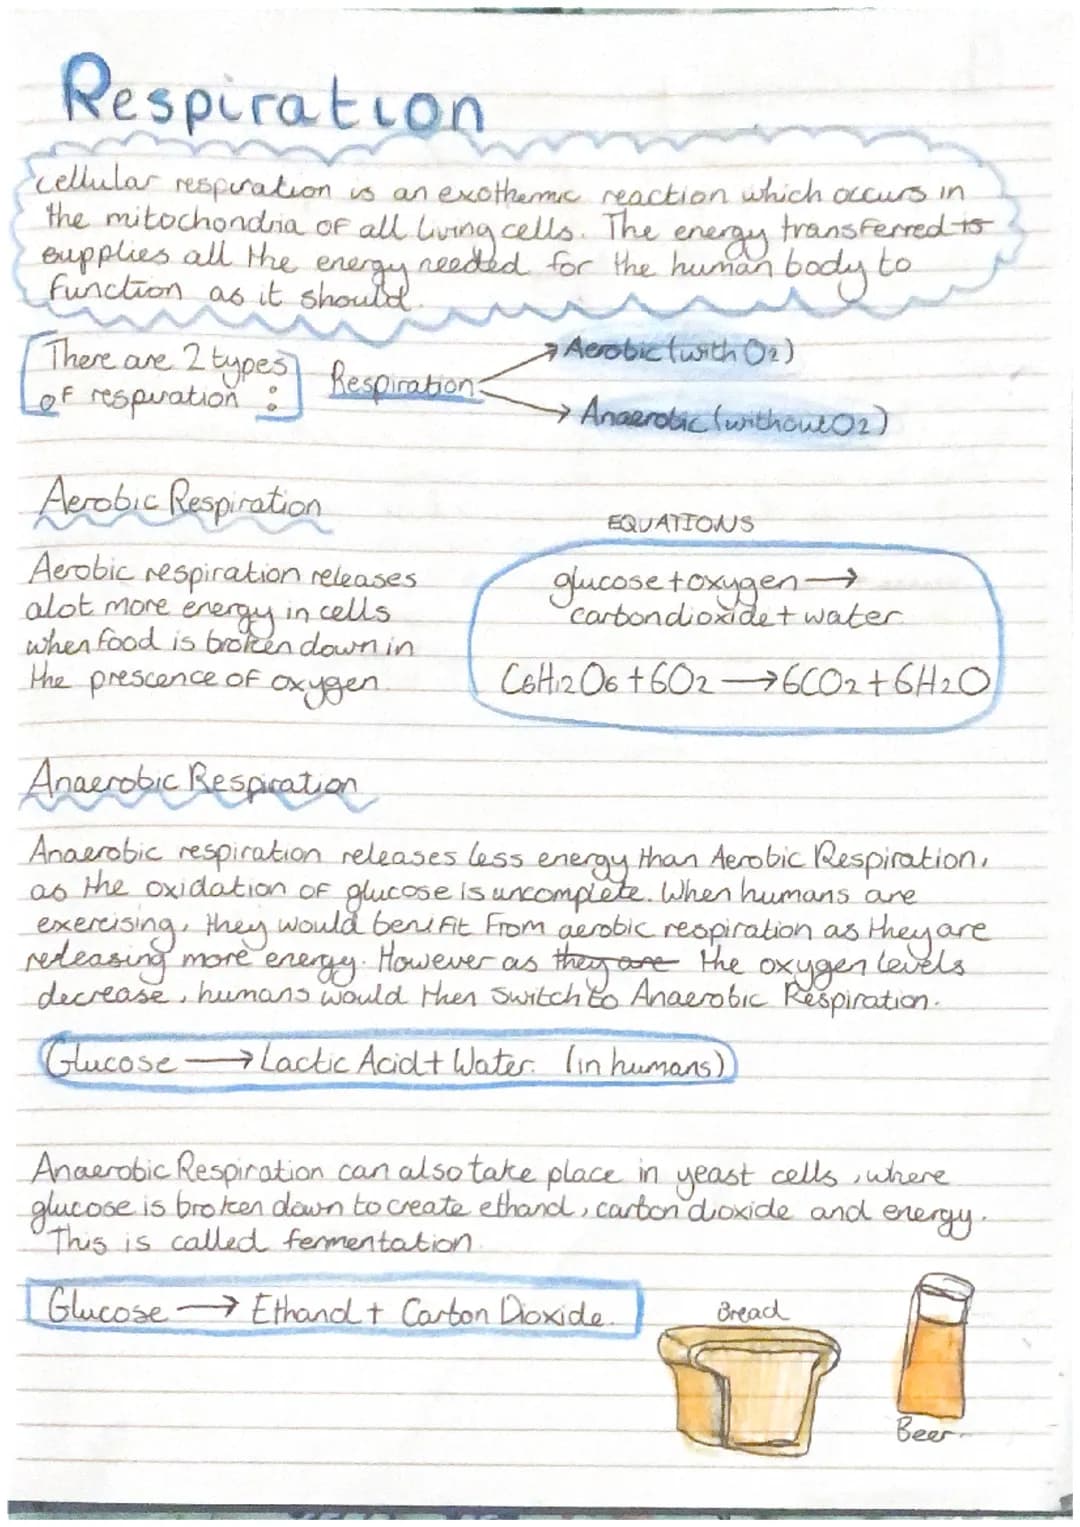 Respiration
cellular respiration is an exothermic reaction which occurs in
the mitochondria of all living cells. The energy transferred is
supplies all the energy needed for the human body to
function as it should.
There are 2 types
of respiration :
Respiration
Aerobic (with O2)
Anaerobic (without O2)
Aerobic Respiration
Aerobic respiration releases
alot more energy in cells
when food is broken down in
the prescence of oxygen.
EQUATIONS
glucose + oxygen →
carbon dioxide + water
C6H12O6 + 6O2 → 6CO2 + 6H2O
Anaerobic Respiration
Anaerobic respiration releases less energy than Aerobic Respiration,
as the oxidation of glucose is uncomplete. When humans are
exercising, they would benifit from aerobic respiration as they are
releasing more energy. However as they are the oxygen levels
decrease, humans would then switch to Anaerobic Respiration.
Glucose → Lactic Acid + Water. (in humans)
Anaerobic Respiration can also take place in yeast cells, where
glucose is broken down to create ethanol, carbon dioxide and energy.
This is called fermentation.
Glucose → Ethanol + Carbon Dioxide.
Bread
Beer